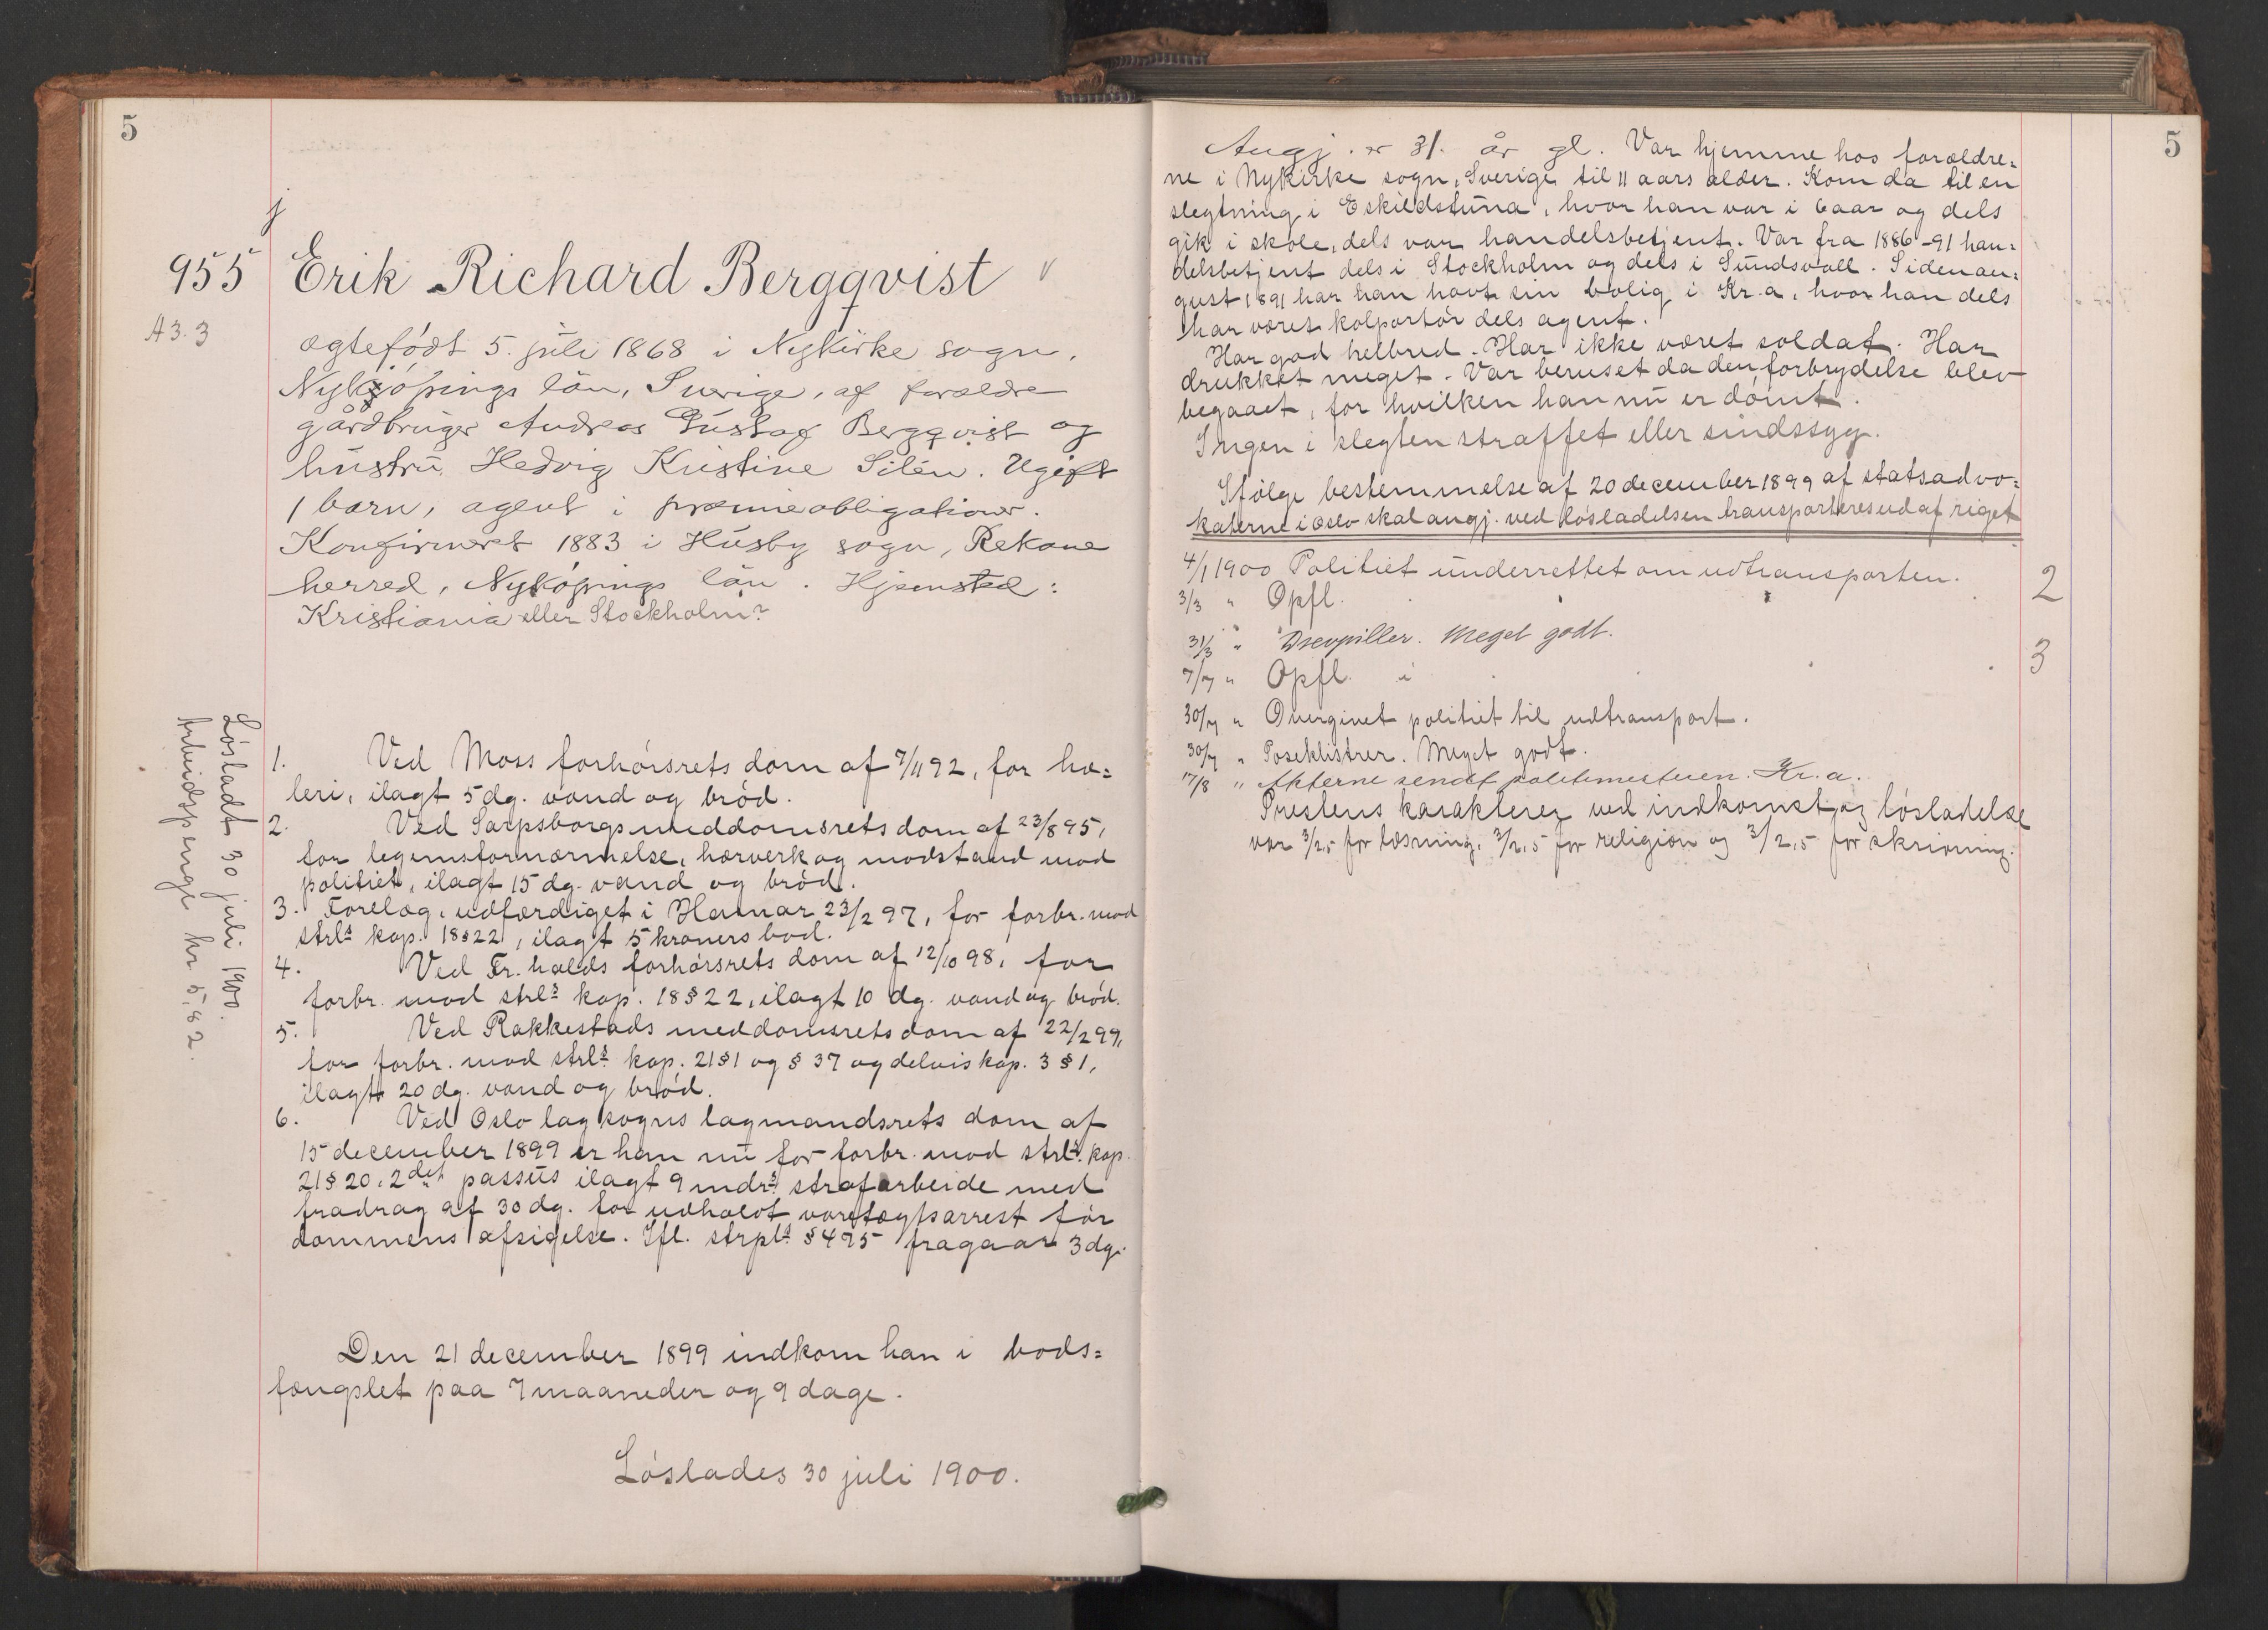 5
j
955 Erik Richard Bergqvist v
A 3. 3
ægtefödt 5. juli 1868 i Nykirke sogn,
Nykjöpings län, Sverige, af forældre
gårdbruger Andreas Gustaf Bergqvist og
hustru Hedvig Kristine Silén. Ugift
1 barn, agent i præmieobligationer.
Konfirmeret 1883 i Husby sogn, Rekane
herred, Nyköpings län. Hjemsted:
Kristiania eller Stockholm?
Lösladt 30 juli 1900.
Arbeidspenge kr 5,82.
1. Ved Moss forhörsrets dom af 7/11 92, for hæ=
leri, ilagt 5 dg. vand og bröd.
2. Ved Sarpsborgs meddomsrets dom af 23/8 95,
for legemsfornærmelse, hærverk og modstand mod
politiet, ilagt 15 dg. vand og bröd.
3. Forelæg, udfærdiget i Hamar 23/2 97, for forbr. mod
strls kap. 18 § 22, ilagt 5 kroners bod.
4. Ved Fr.halds forhörsrets dom af 12/10 98, for
forbr. mod strls kap. 18 § 22, ilagt 10 dg. vand og bröd.
5. Ved Rakkestads meddomsrets dom af 22/2 99,
for forbr. mod strls kap. 21 § 1 og § 37 og delvis kap. 3 § 1,
ilagt 20 dg. vand og bröd.
6. Ved Oslo lagsogns lagmandsrets dom af
15 december 1899 er han nu for forbr. mod strls. kap.
21 § 20, 2det passus ilagt 9 mdrs. strafarbeide med
fradrag af 30 dg. for udholdt varetægtsarrest för
dommens afsigelse. Ifl. strpls § 475 fragaar 3 dg.
Den 21 december 1899 indkom han i bods=
fængslet paa 7 maaneder og 9 dage.
Löslades 30 juli 1900.
5
Angj. er 31. år gl. Var hjemme hos forældre=
ne i Nykirke sogn, Sverige til 11 aars alder. Kom da til en
slegtning i Eskildstuna, hvor han var i 6 aar og dels
gik i skole, dels var handelsbetjent. Var fra 1886-91 han=
delsbetjent dels i Stockholm og dels i Sundsvall. Siden au=
gust 1891 har han havt sin bolig i Kr.a, hvor han dels
har været kolportör dels agent.
Har god helbred. Har ikke været soldat. Har
drukket meget. Var beruset da den forbrydelse blev
begaaet, for hvilken han nu er dömt.
Ingen i slegten straffet eller sindssyg.
Ifölge bestemmelse af 20 december 1899 af statsadvo=
katerne i Oslo skal angj. ved lösladelsen transporteres ud af riget
4/1 1900 Politiet underrettet om udtransporten.
3/3 " Opfl. 2
31/3 " Drevpiller. Meget godt.
7/7 " Opfl. i 3
30/7 " Overgivet politiet til udtransport.
30/7 " Poseklistrer. Meget godt.
17/8 " Akterne sendt politimesteren. Kr.a.
Prestens karakterer ved indkomst og lösladelse
var 3/2,5 for læsning, 3/2,5 for religion og 3/2,5 for skrivning.